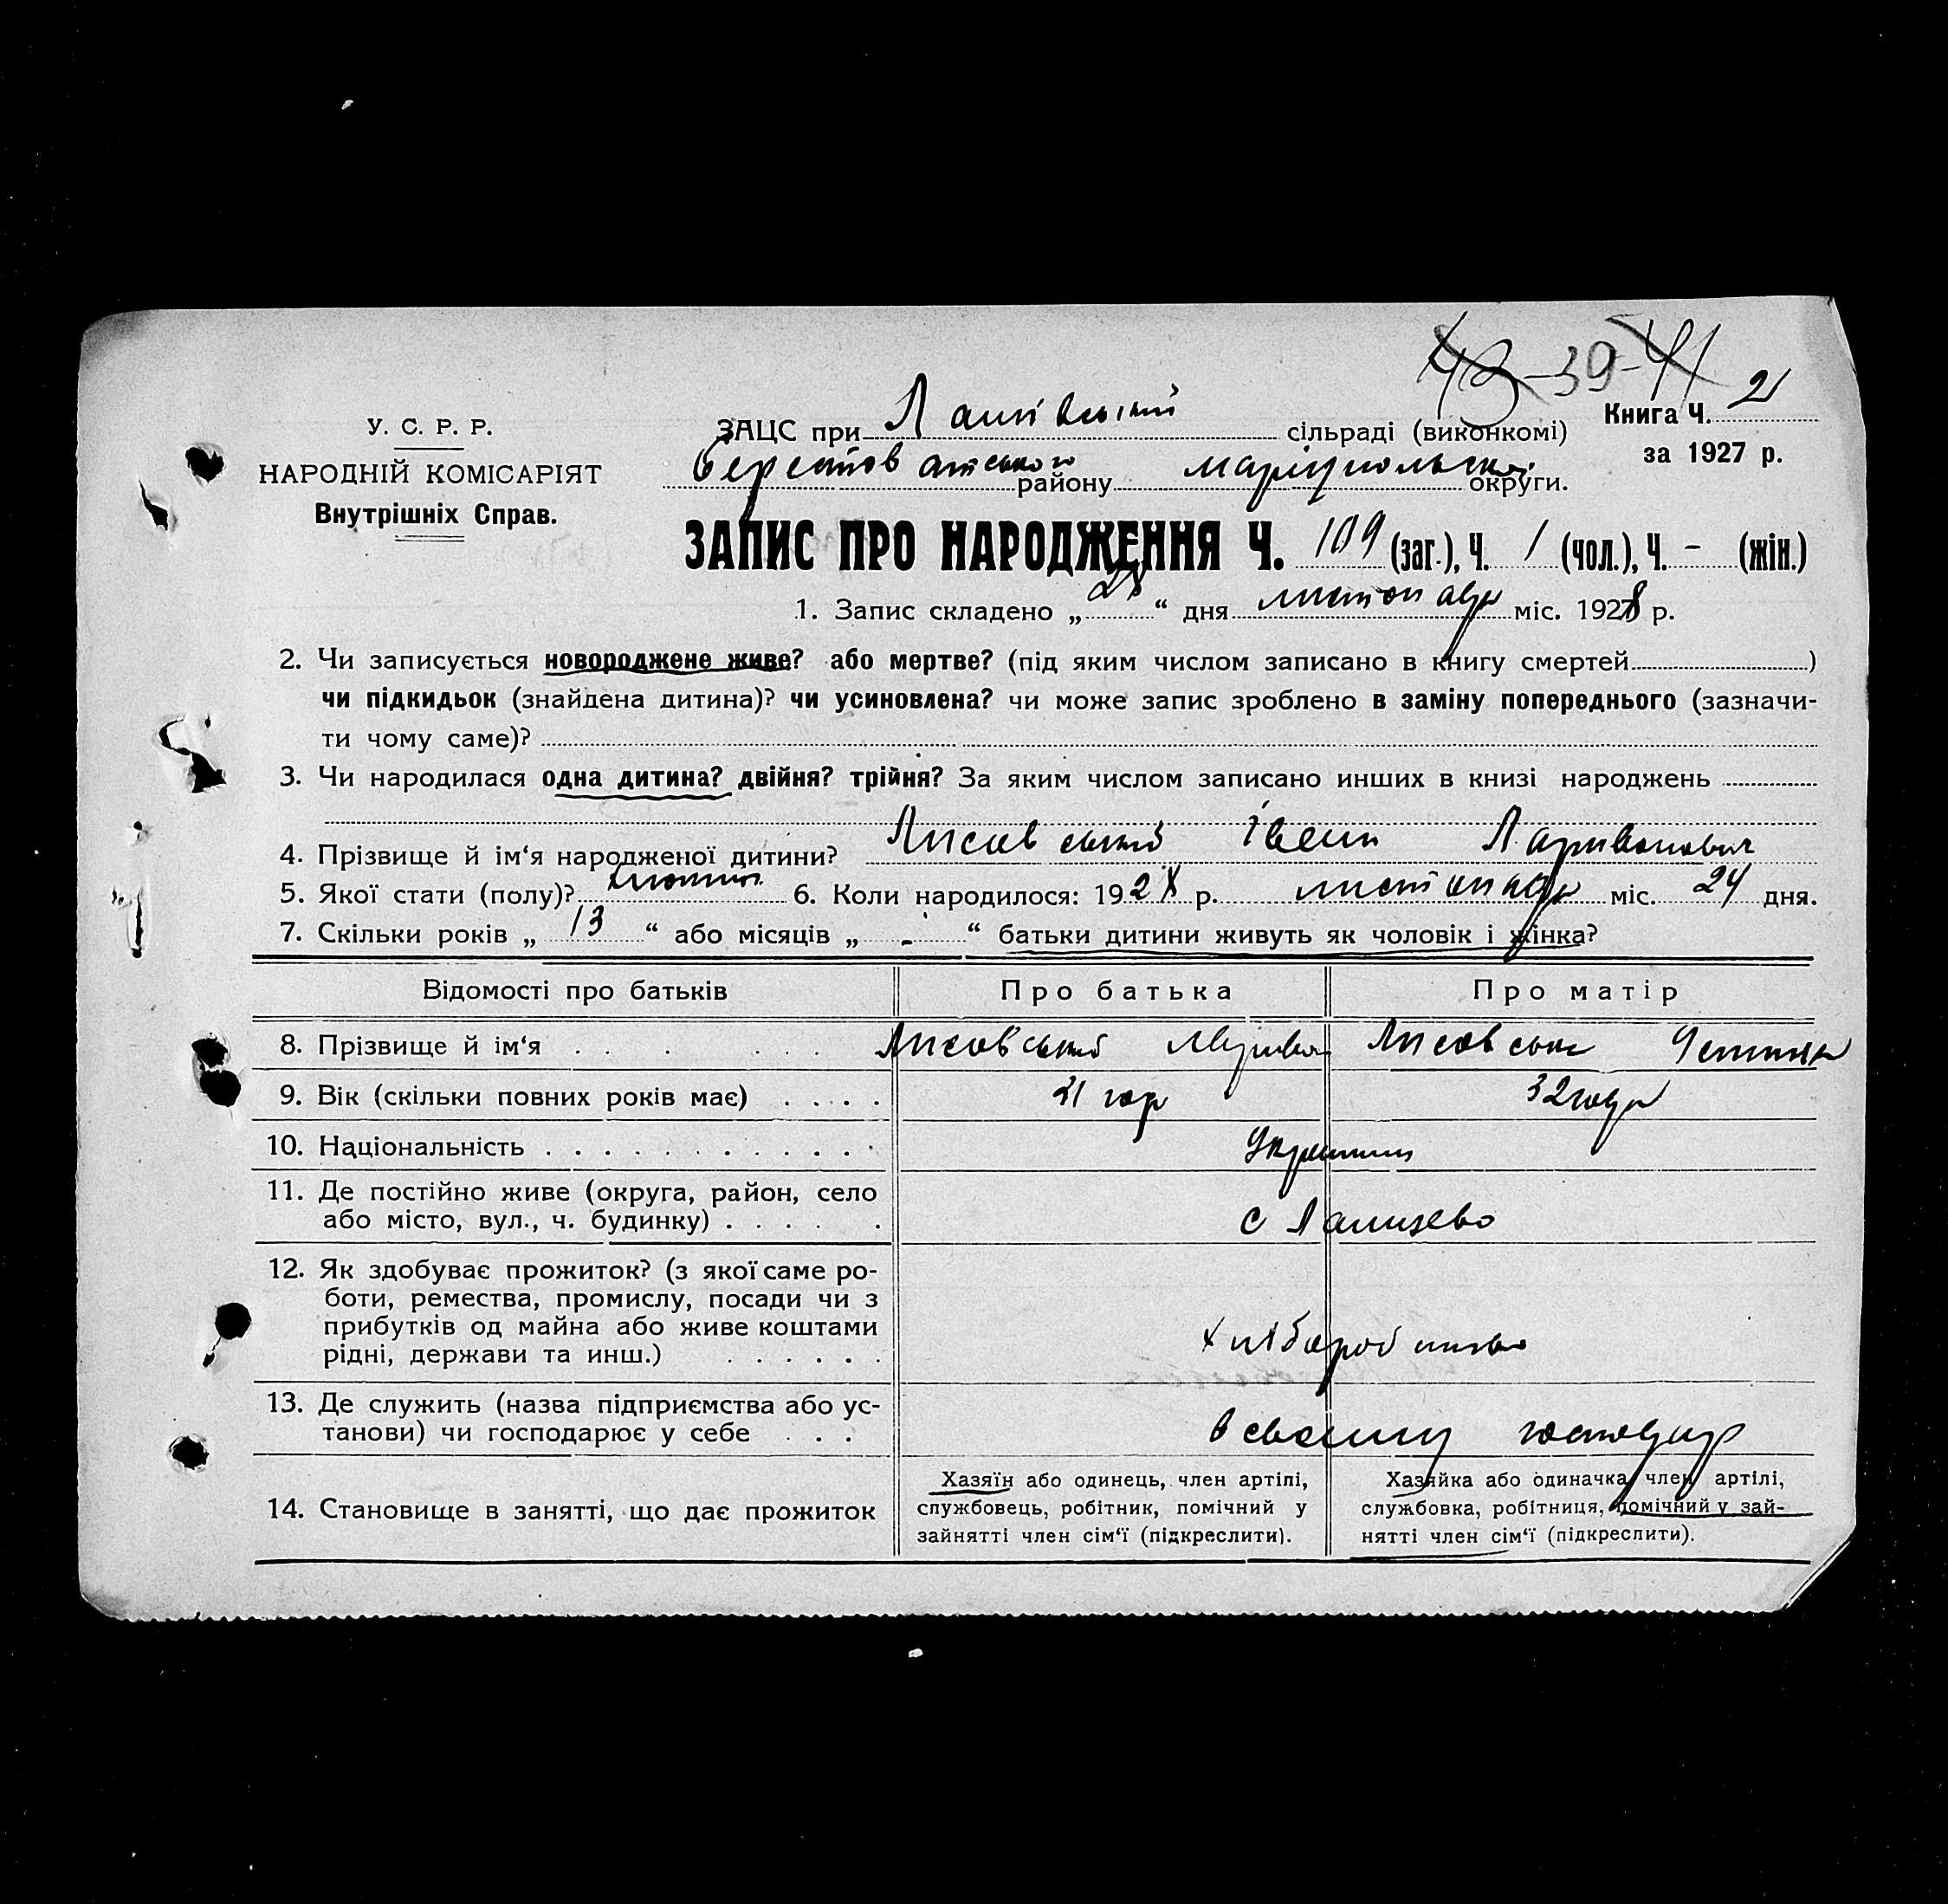 39
У. С. Р. Р.
НАРОДНІЙ КОМІСАРІЯТ
Внутрішніх Справ.
ЗАЦС при сільраді (виконкомі)
Книга Ч. 2
за 1927 р.
району маріупольської округи.
ЗАПИС ПРО НАРОДЖЕННЯ Ч. 109 (заг.), Ч. 1 (чол.), Ч. - (жін.)
1. Запис складено „28“ дня листопада міс. 1928 р.
2. Чи записується новороджене живе? або мертве? (під яким числом записано в книгу смертей )
чи підкидьок (знайдена дитина)? чи усиновлена? чи може запис зроблено в заміну попереднього (зазначи-
ти чому саме)?
3. Чи народилася одна дитина? двійня? трійня? За яким числом записано инших в книзі народжень
4. Прізвище й ім‘я народженої дитини? Лисовський Іван Ларивонович
5. Якої стати (полу)? 6. Коли народилося: 1928 р. листопада міс. 24 дня.
7. Скільки років „ 13 “ або місяців „ - “ батьки дитини живуть як чоловік і жінка?
Відомості про батьків Про батька Про матір
8. Прізвище й ім‘я . . . . . . Лисовський Ларивон Лисовська Устиния
9. Вік (скільки повних років має) . . . . 31 год 32 года
10. Національність . . . . . . . . . . .
11. Де постійно живе (округа, район, село
або місто, вул., ч. будинку) . . . . . с
12. Як здобуває прожиток? (з якої саме ро-
боти, ремества, промислу, посади чи з
прибутків од майна або живе коштами
рідні, держави та инш.) . . . . . .
хліборобство
13. Де служить (назва підприємства або ус-
танови) чи господарює у себе . . . в своєму господар
14. Становище в занятті, що дає прожиток
Хазяїн або одинець, член артілі,
службовець, робітник, помічний у
зайнятті член сім‘ї (підкреслити).
Хазяйка або одиначка, член артілі,
службовка, робітниця, помічний у зай-
нятті член сім‘ї (підкреслити).